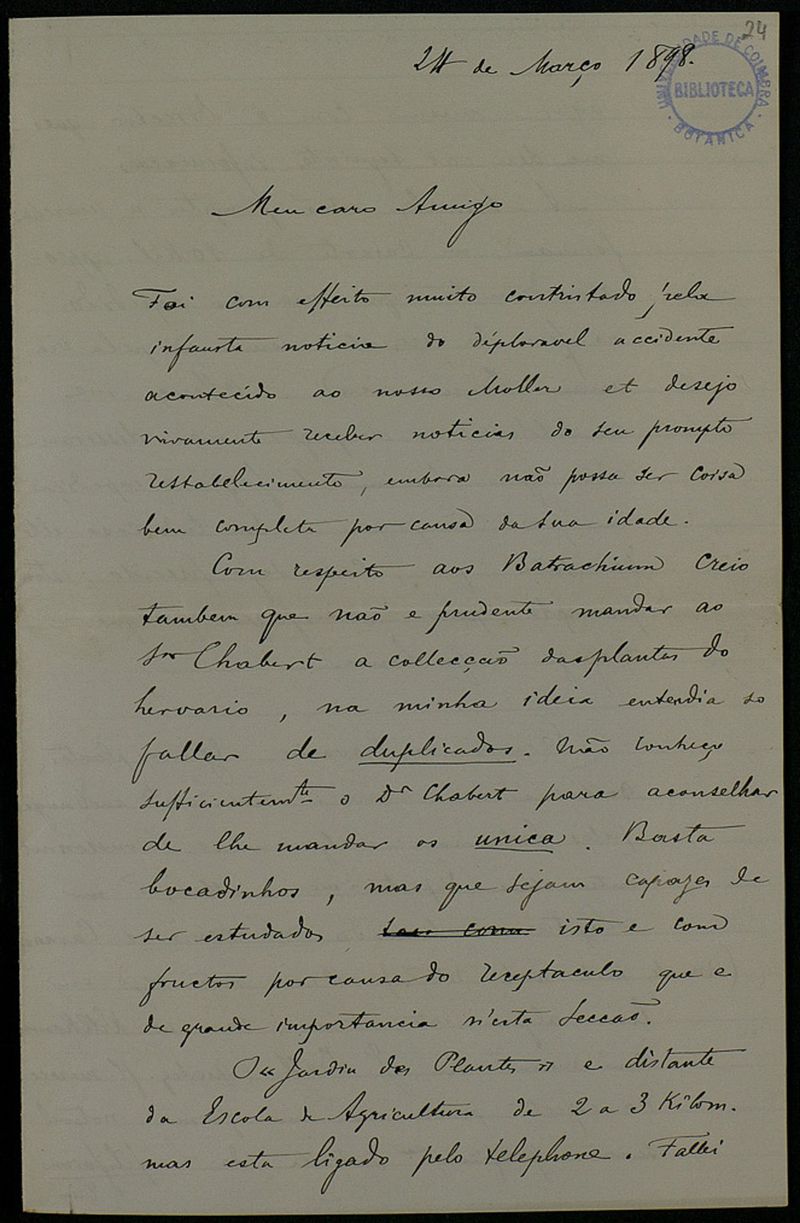 24
24 de Março 1898.
UNIVERSIDADE DE COIMBRA
BIBLIOTECA
BOTANICA
Meu caro Amigo
Foi com effeito muito contristado pela
infausta noticia do déploravel accidente
acontecido ao nosso Moller et desejo
vivamente receber noticias do seu prompto
restabelecimento, embora não possa ser coisa
bem completa por causa da sua idade.
Com respeito aos Batrachium creio
tambem que não e prudente mandar ao
Snr Chabert a collecção das plantas do
hervario, na minha ideia entendia so
fallar de duplicados. Não conheço
sufficientemte o Dr Chabert para aconselhar
de lhe mandar os unica. Basta
bocadinhos, mas que sejam capazes de
ser estudados isto e com
fructos por causa do receptaculo que e
de grande importancia n'esta secção.
O «Jardin des Plantes» e distante
da Escola de Agricultura de 2 a 3 Kilom.
mas esta ligado pelo telephone. Fallei